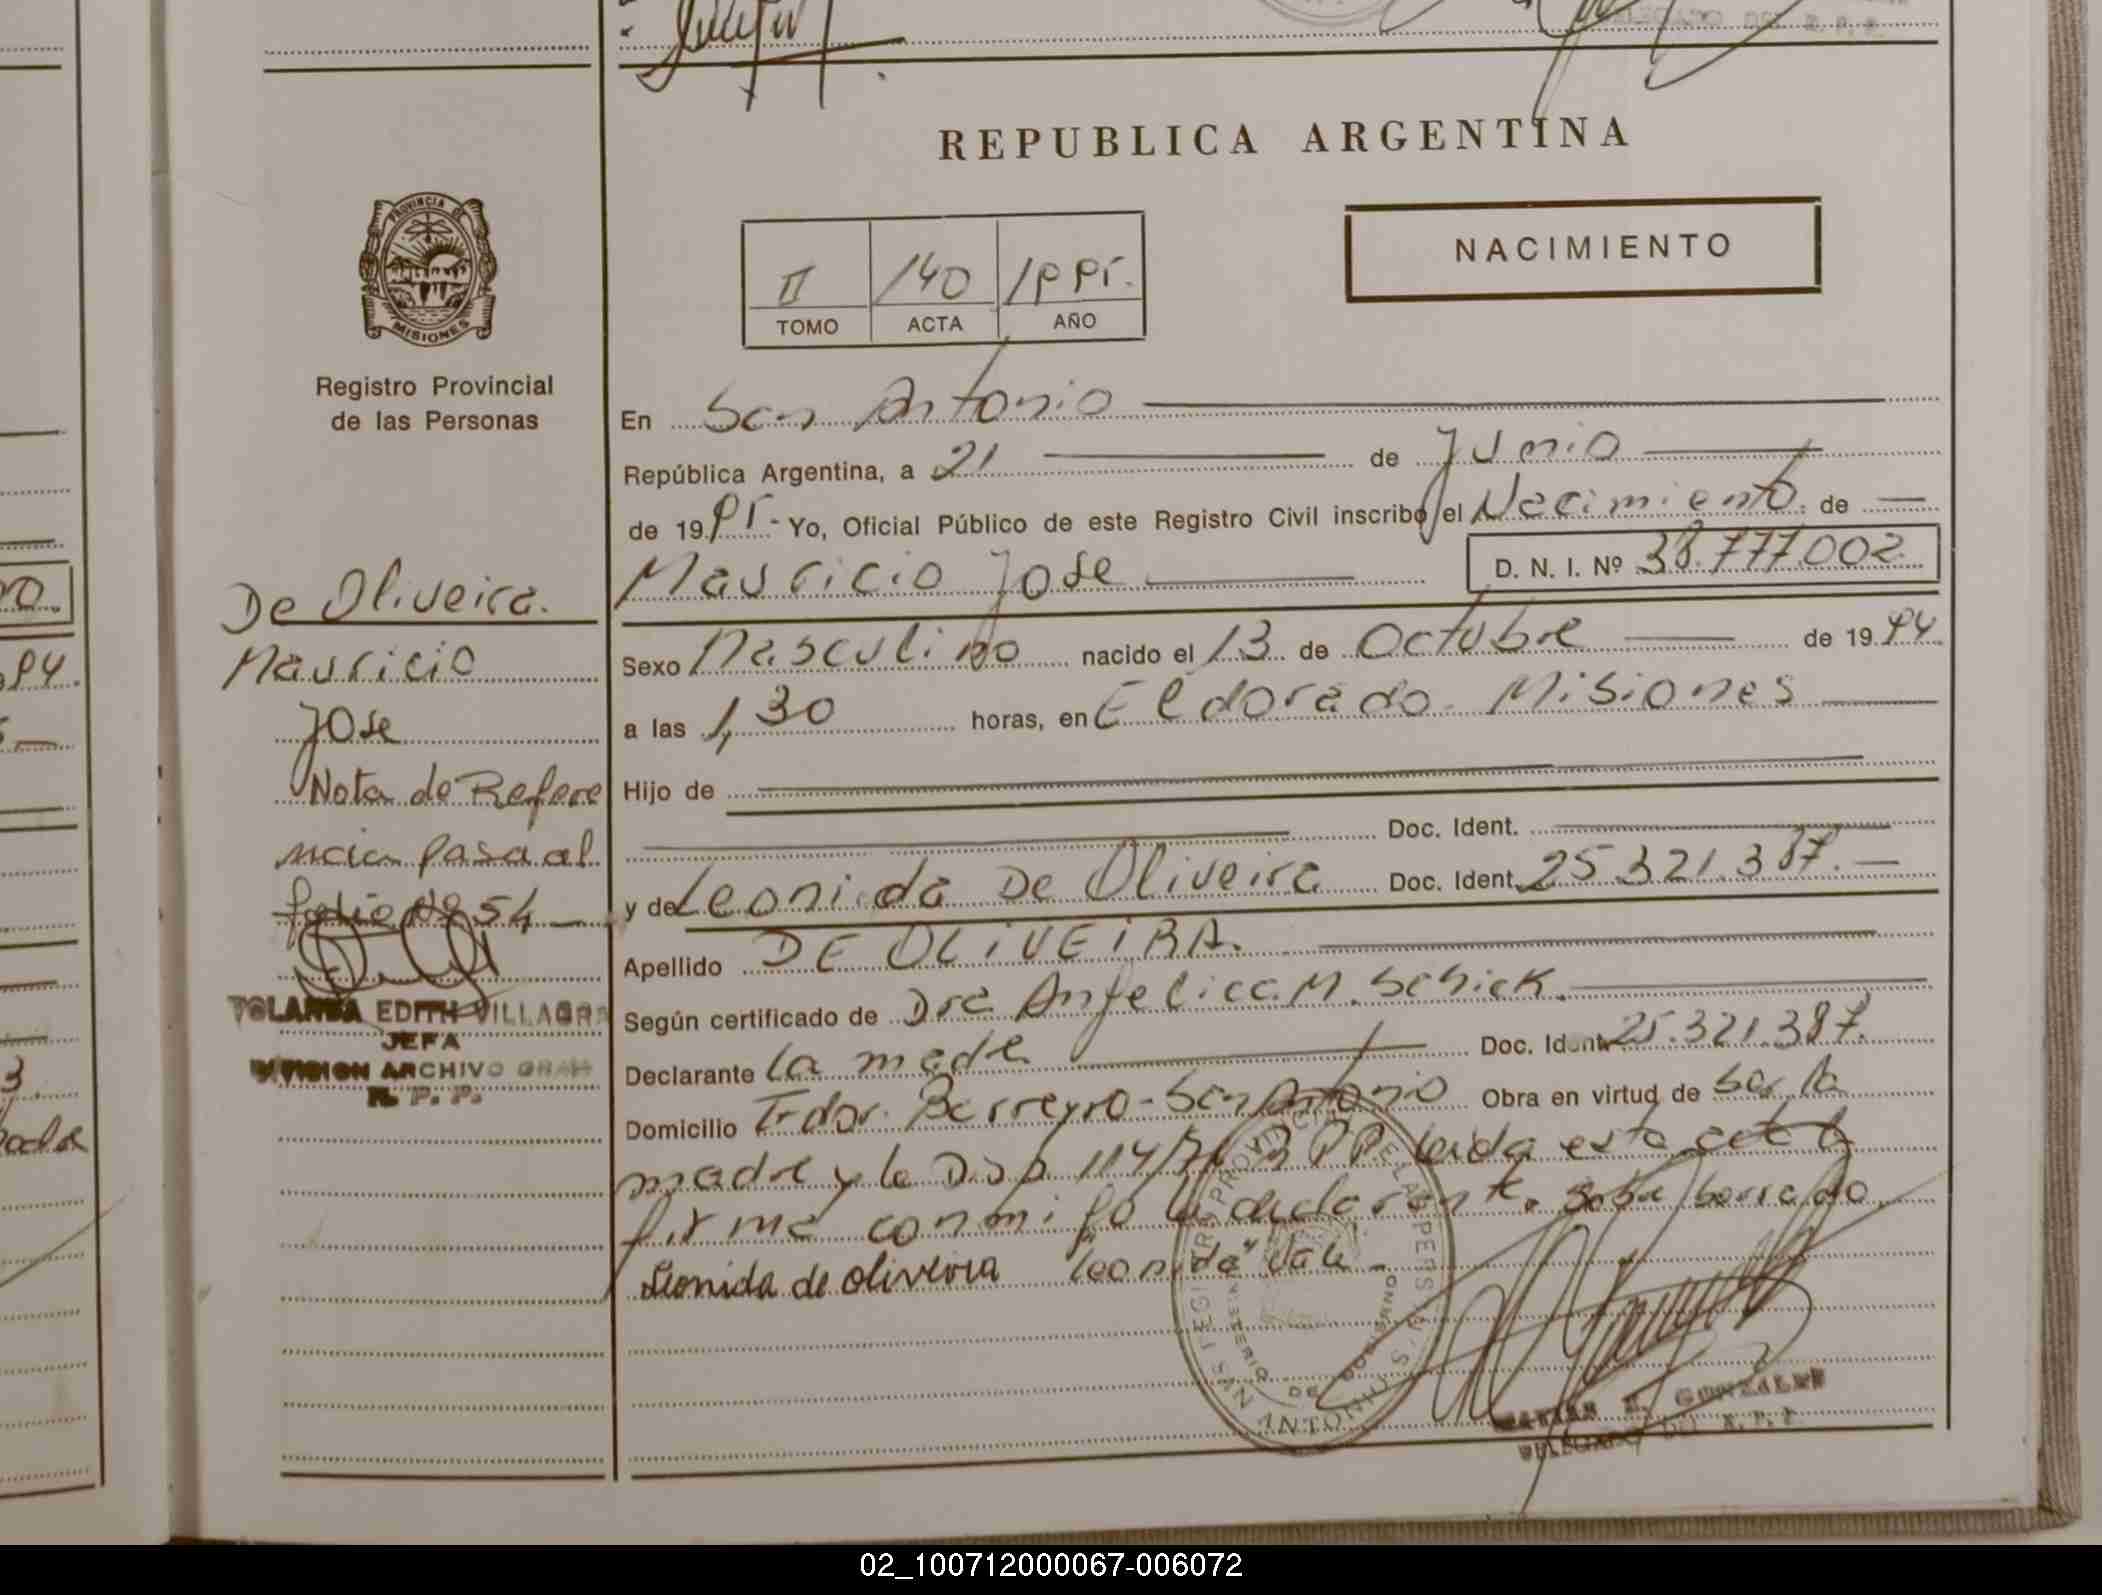 REPUBLICA ARGENTINA
NACIMIENTO
II 140 1995.
TOMO ACTA AÑO
PROVINCIA DE
MISIONES
Registro Provincial
de las Personas
En San Antonio
República Argentina, a 21 de Junio
de 1995.- Yo, Oficial Público de este Registro Civil inscribo el Nacimiento. de
Mauricio Jose D. N. I. Nº 38.777.002
Sexo Masculino nacido el 13 de Octubre de 1994
a las 1,30 horas, en Eldorado - Misiones
Hijo de
Doc. Ident.
y de Leonida De Oliveira Doc. Ident. 25.321.387.-
Apellido DE OLIVEIRA.
Según certificado de Dra Angelica M. Schick.
Declarante la madre Doc. Ident. 25.321.387.
Domicilio Fdor. Barreyro - San Antonio Obra en virtud de ser la
madre y la leida esta acta la
firma conmigo la declarante. Sobre borrado
"Leonida" Vale -
Leonida de oliveira
De Oliveira.
Mauricio
Jose
Nota de Refere
ncia pasa al
folio Nº 54 -
YOLANDA EDITH VILLAGRA
JEFA
DIVISION ARCHIVO GRAL
R. P. P.
REGISTRO PROVINCIAL DE LAS PERSONAS
MINISTERIO DE GOBIERNO
SAN ANTONIO
GONZALEZ
DELEGADO DEL R.P.P.
02_100712000067-006072